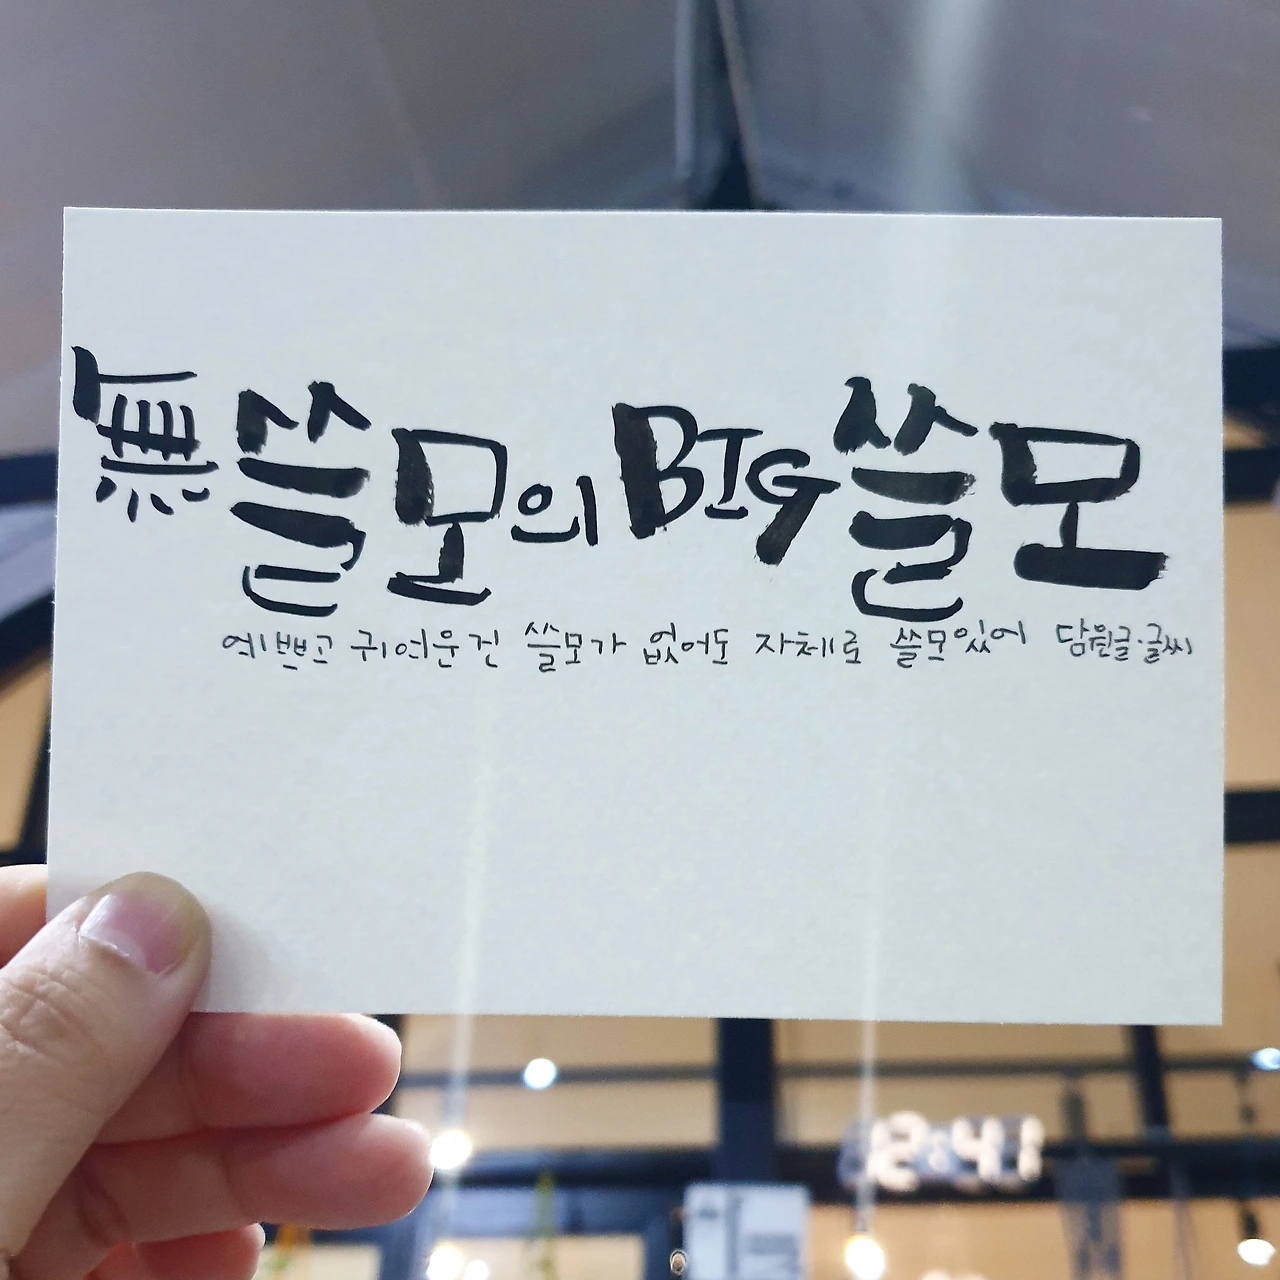 無쓸모의 BIG쓸모
예쁘고 귀여운건 쓸모가 없어도 자체로 쓸모있어 담원글·글씨
12:41